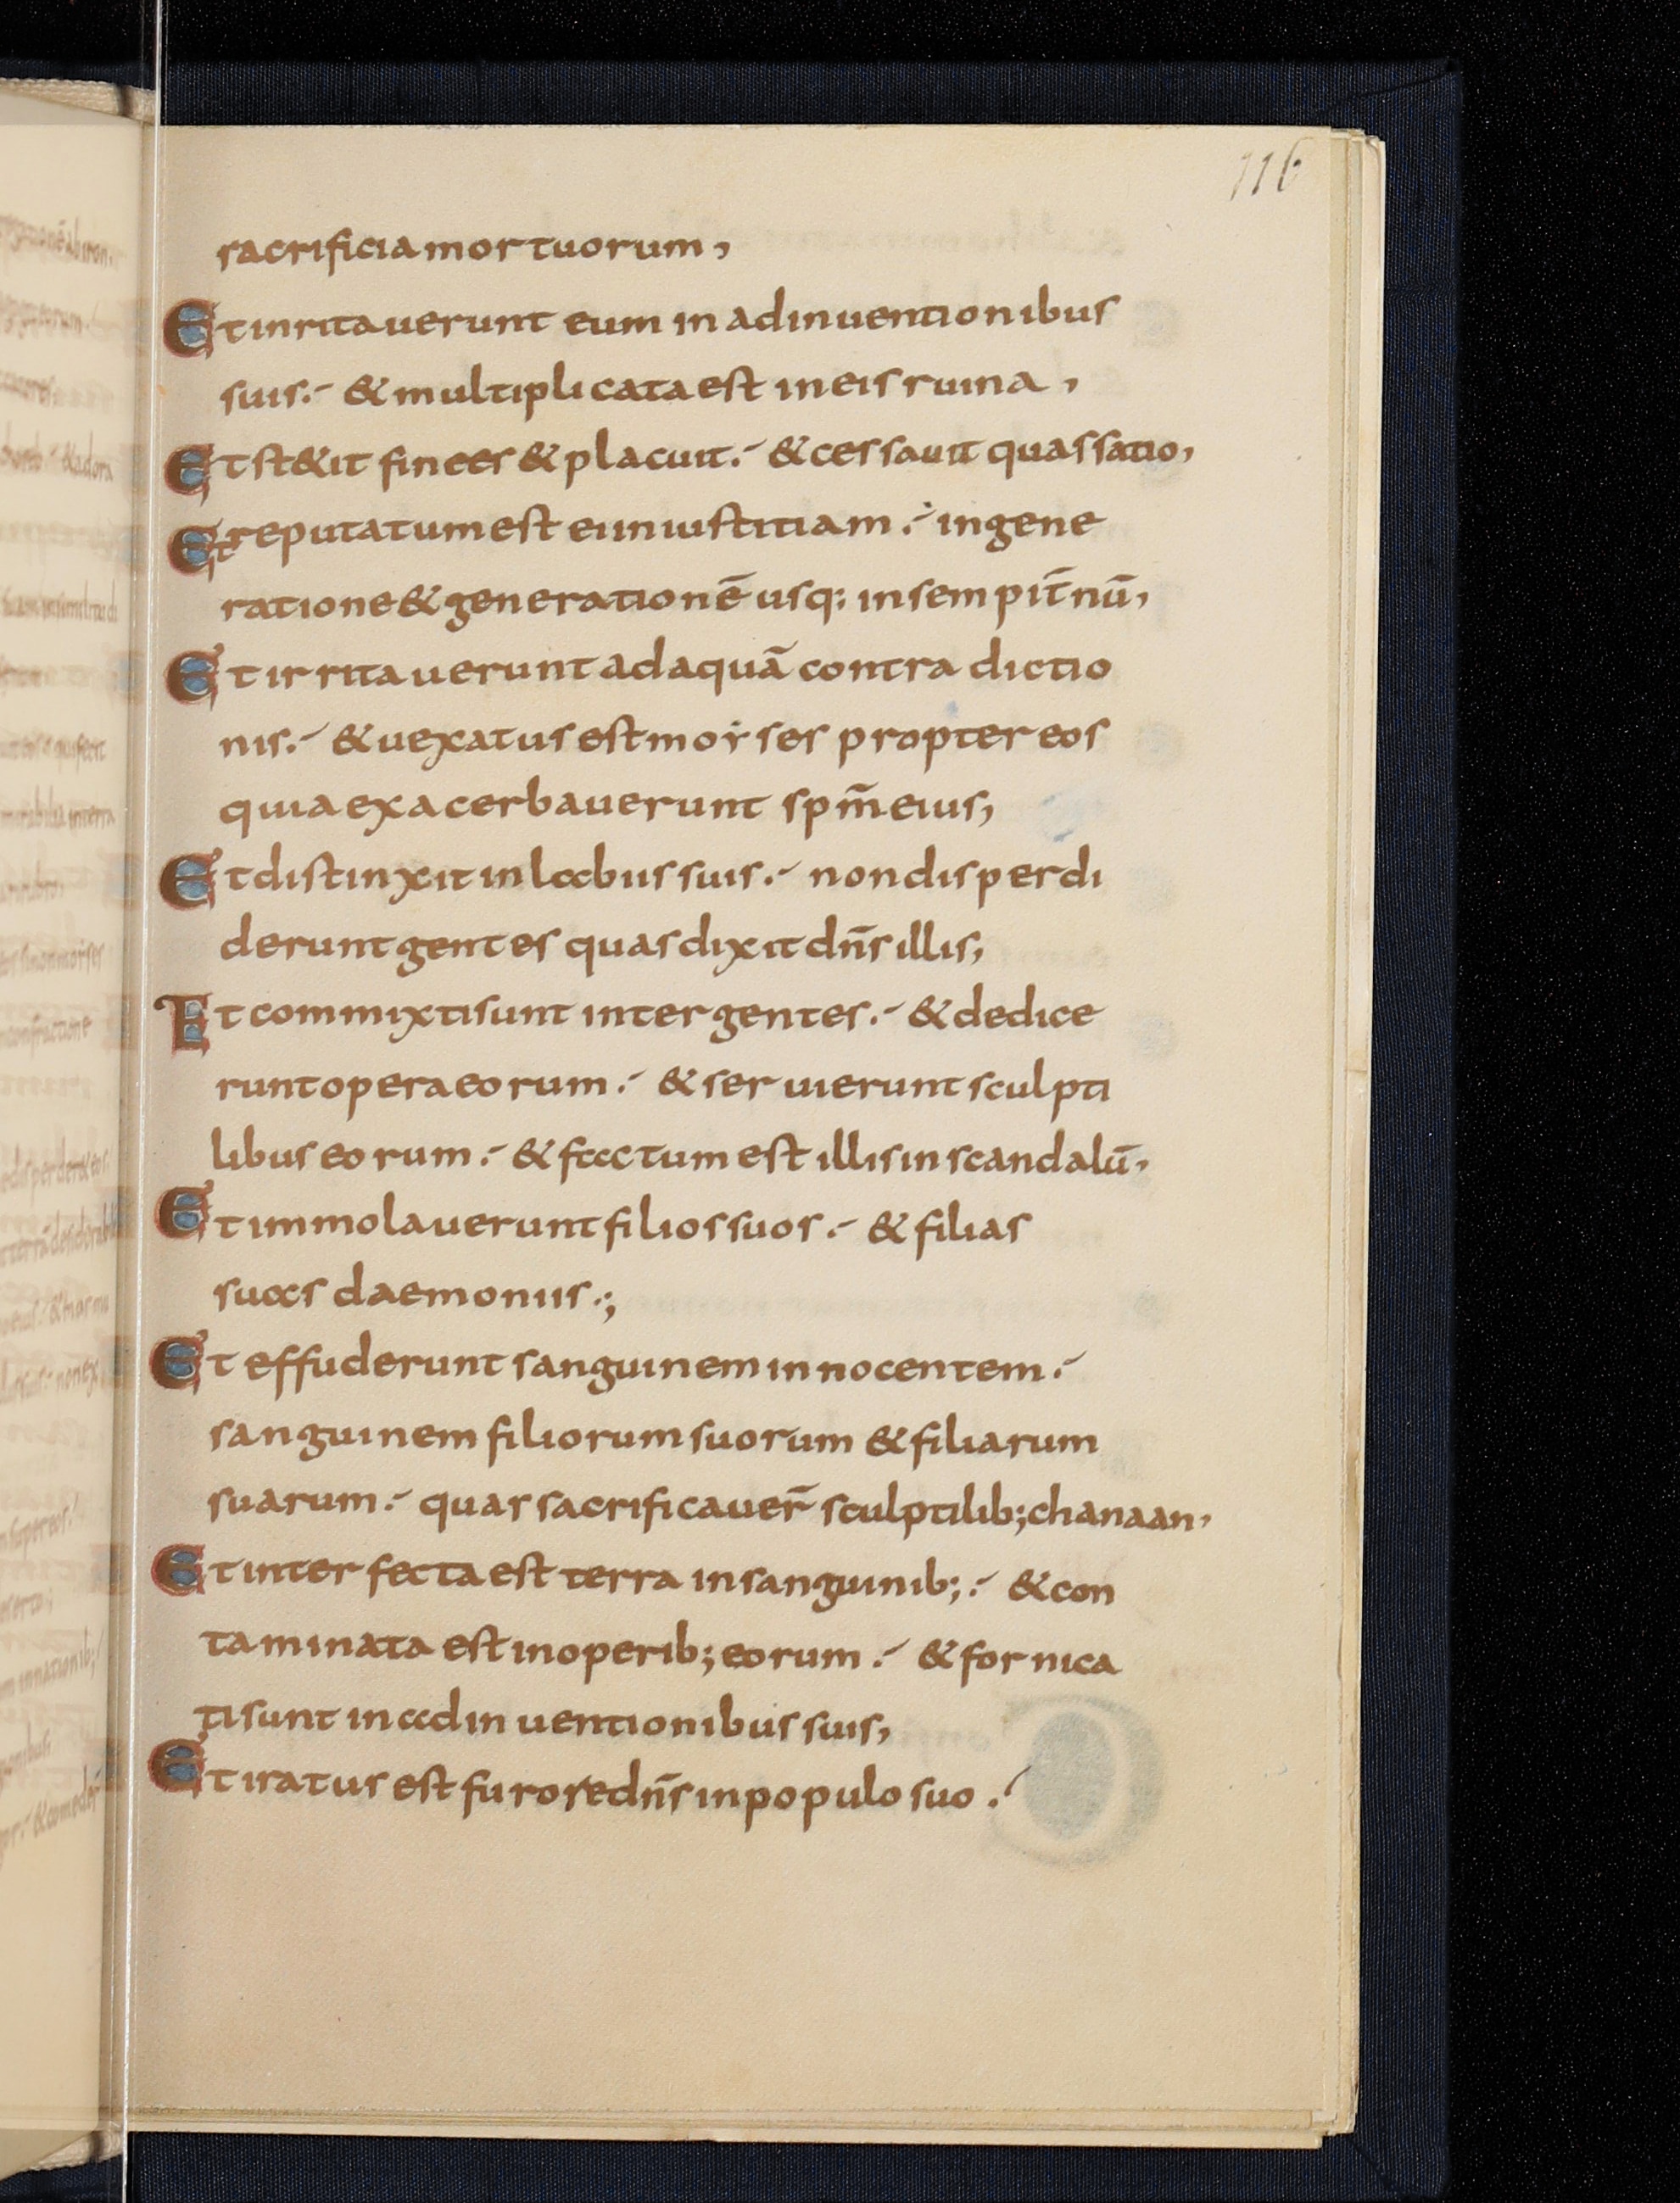 116
sacrificia mortuorum,
Et inritauerunt eum in adinuentionibus
suis.- & multiplicata est in eis ruina,
Et st&it finees & placuit.- & cessauit quassatio,
Et reputatum est ei in iustitiam.- in gene
ratione & generationē usq; in sempit̄nū,
Et irritauerunt ad aquā contradictio
nis.- & uexatus est moẏses propter eos
quia exacerbauerunt sp̄m eius,
Et distinxit in labiis suis.- non disperdi
derunt gentes quas dixit dn̄s illis,
Et commixti sunt inter gentes.- & dedice
runt opera eorum.- & seruierunt sculpti
libus eorum.- & factum est illis in scandalū,
Et immolauerunt filios suos.- & filias
suas daemoniis.;
Et effuderunt sanguinem innocentem.-
sanguinem filiorum suorum & filiarum
suarum.- quas sacrificauer̄ sculptilib; chanaan,
Et interfecta est terra in sanguinib;.- & con
taminata est in operib; eorum.- & fornica
ti sunt in adinuentionibus suis,
Et iratus est furore dn̄s in populo suo.-